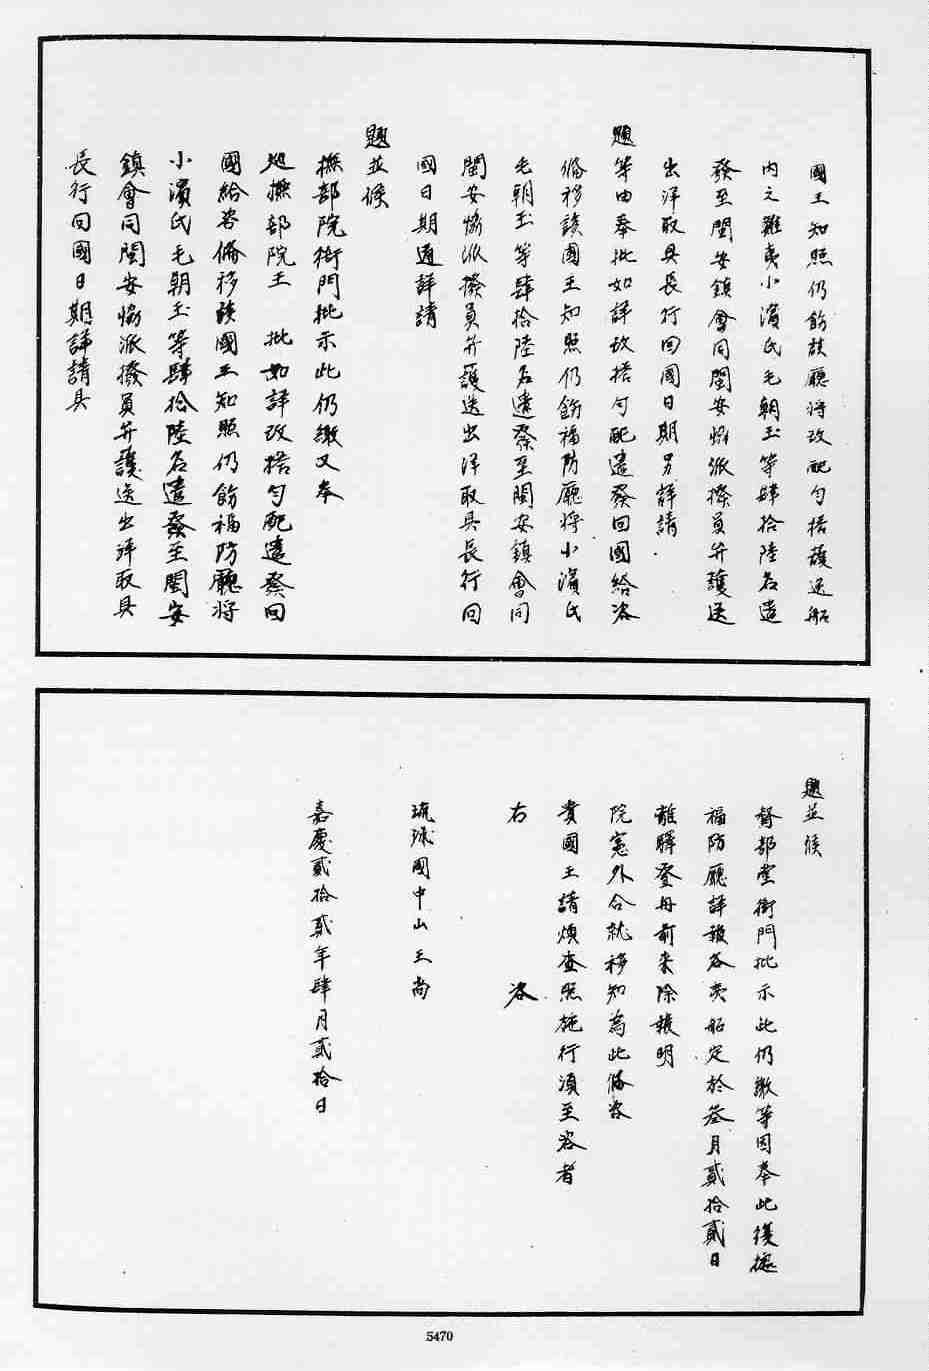 國王知照仍飭該廳將改配勻搭護送船
內之難夷小濱氏毛朝玉等肆拾陸名遣
發至閩安鎮會同閩安協派撥員弁護送
出洋取具長行回國日期另詳請
題等由奉批如詳改搭勻配遣發回國給咨
俻移該國王知照仍飭福防廳將小濱氏
毛朝玉等肆拾陸名遣發至閩安鎮會同
閩安協派撥員弁護送出洋取具長行回
國日期通詳請
題並候
撫部院衙門批示此仍繳又奉
廵撫部院王 批如詳改搭勻配遣發回
國給咨俻移該國王知照仍飭福防廳將
小濱氏毛朝玉等肆拾陸名遣發至閩安
鎮會同閩安協派撥員弁護送出洋取具
長行回國日期詳請具
題並候
督部堂衙門批示此仍繳等因奉此復據
福防廳詳報各夷船定於叁月貳拾貳日
離驛登舟前來除報明
院憲外合就移知為此俻咨
貴國王請煩查照施行須至咨者
右 咨
琉球國中山王尚
嘉慶貳拾貳年肆月貳拾日
5470